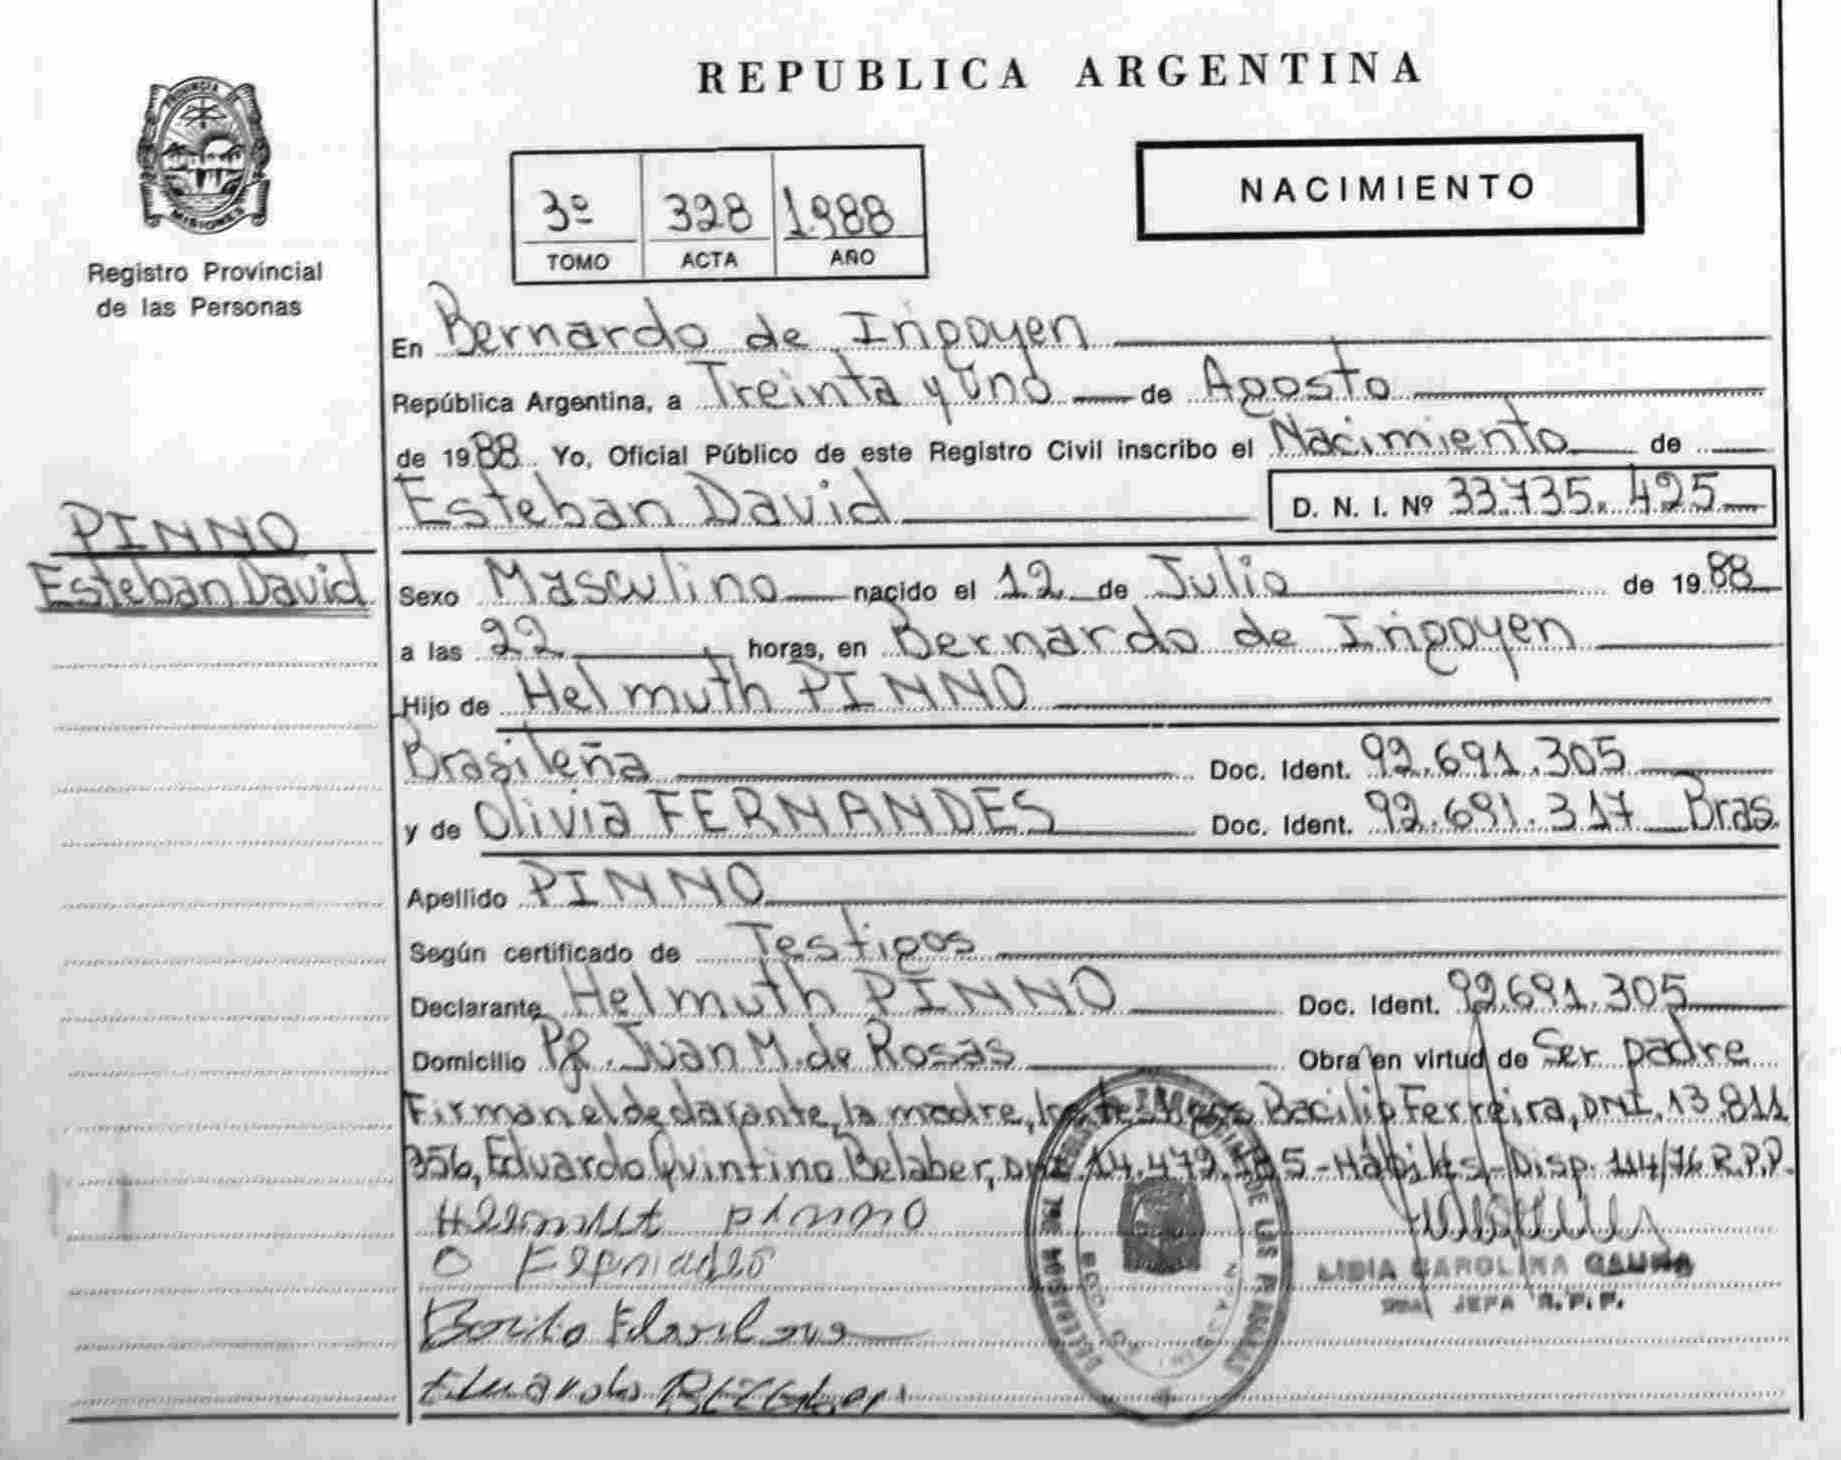 REPUBLICA ARGENTINA
PROVINCIA DE
MISIONES
Registro Provincial
de las Personas
3º 328 1.988
TOMO ACTA AÑO
NACIMIENTO
En Bernardo de Irigoyen
República Argentina, a Treinta y Uno de Agosto
de 1988 Yo, Oficial Público de este Registro Civil inscribo el Nacimiento de
Esteban David D. N. I. Nº 33.735.425
PINNO
Esteban David
Sexo Masculino nacido el 12 de Julio de 1988
a las 22 horas, en Bernardo de Irigoyen
Hijo de Helmuth PINNO
Brasileña Doc. Ident. 92.691.305
y de Olivia FERNANDES Doc. Ident. 92.691.317 Bras.
Apellido PINNO
Según certificado de Testigos
Declarante Helmuth PINNO Doc. Ident. 92.691.305
Domicilio Pje. Juan M. de Rosas Obra en virtud de Ser padre
Firman el declarante, la madre, los testigos Bacilio Ferreira, DNI. 13.811
356, Eduardo Quintino Belaber, DNI. 14.479. - Hábiles - Disp. 114/76 R.P.P.
PINNO
O
LIDIA CAROLINA GAUNA
JEFA R.P.P.